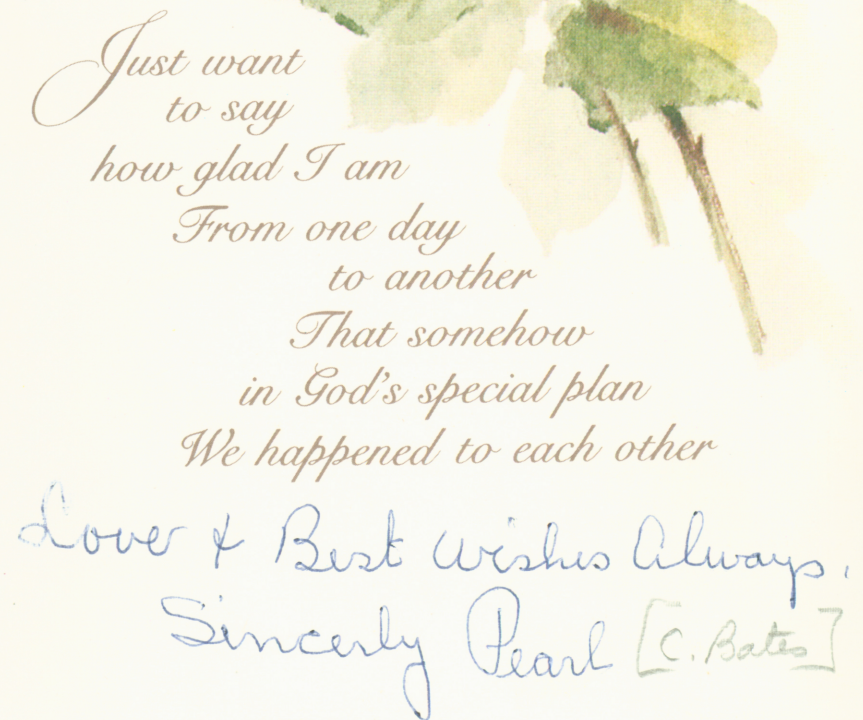 Just want
to say
how glad I am
From one day
to another
That somehow
in God's special plan
We happened to each other
Lover & Best Wishes Always,
Sincerly Pearl [C. Bates]